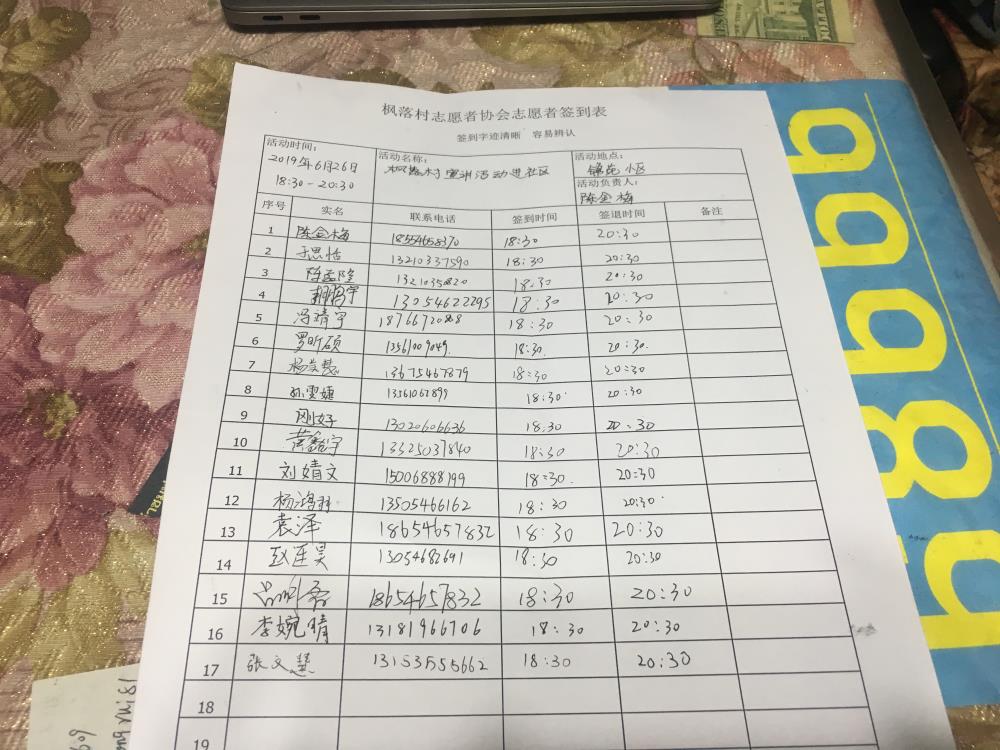 枫落村志愿者协会志愿者签到表
签到字迹清晰 容易辨认
活动时间：
2019年6月26日
18:30-20:30
活动名称：
枫落村宣讲活动进社区
活动地点：
锦苑小区
活动负责人：
陈金梅
序号 实名 联系电话 签到时间 签退时间 备注
1 陈金梅 18554658370 18:30 20:30
2 于思恬 13210337590 18:30 20:30
3 18:30 20:30
4 13054622295 18:30 20:30
5 冯靖宇 18:30 20:30
6 罗昕硕 13561009049. 18:30. 20:30.
7 13675467879 18:30 20:30
8 孙雯婕 13561067899 18:30 20:30
9 刚好 13020606636 18:30 20:30
10 黄鑫宇 13325037840 18:30 20:30
11 刘婧文 15006888199 18:30. 20:30
12 杨鸿羽 13505466162 18:30 20:30
13 袁泽 18654657832 18:30 20:30
14 赵连昊 13054682691 18:30 20:30
15 18654657832 18:30 20:30
16 李婉晴 13181966706 18:30 20:30
17 张文慧 13153555662 18:30 20:30
18
19